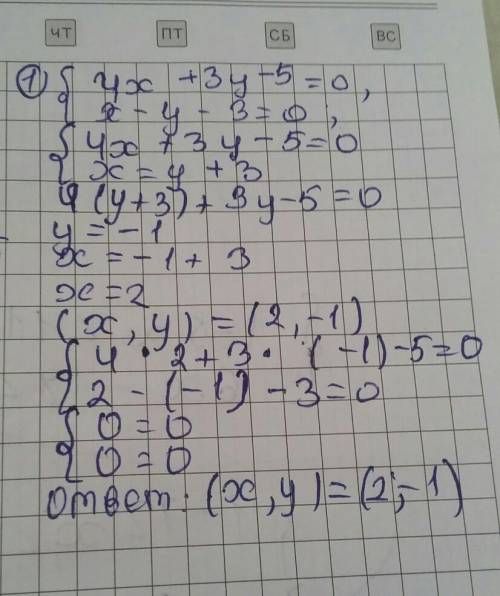 ЧТ ПТ СБ ВС
1) { 4x + 3y - 5 = 0,
x - y - 3 = 0,
{ 4x + 3y - 5 = 0
x = y + 3
4(y+3) + 3y - 5 = 0
y = -1
x = -1 + 3
x = 2
(x, y) = (2, -1)
{ 4 · 2 + 3 · (-1) - 5 = 0
2 - (-1) - 3 = 0
{ 0 = 0
0 = 0
Ответ: (x, y) = (2, -1)